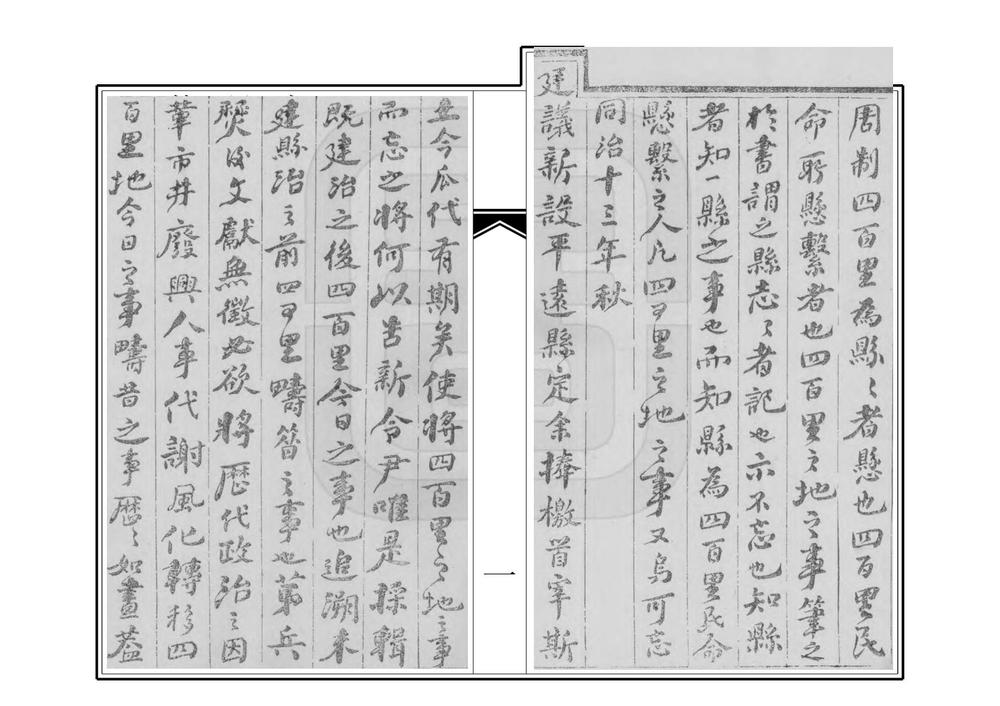 周制四百里為縣〻者懸也四百里民
命所懸繫者也四百里之地之事筆之
於書謂之縣志〻者記也示不忘也知縣
者知一縣之事也而知縣為四百里民命
懸繫之人凡四百里之地之事又烏可忘
同治十三年秋
廷議新設平遠縣定余捧檄首宰斯
土今瓜代有期矣使將四百里之地之事
而忘之將何以告新令尹唯是採輯
既建治之後四百里今日之事也追溯未
建縣治之前四百里疇昔之事也第兵
燹後文獻無徵必欲將歷代政治之因
革市井廢興人事代謝風化轉移四
百里地今日之事疇昔之事歷〻如畫蓋
一